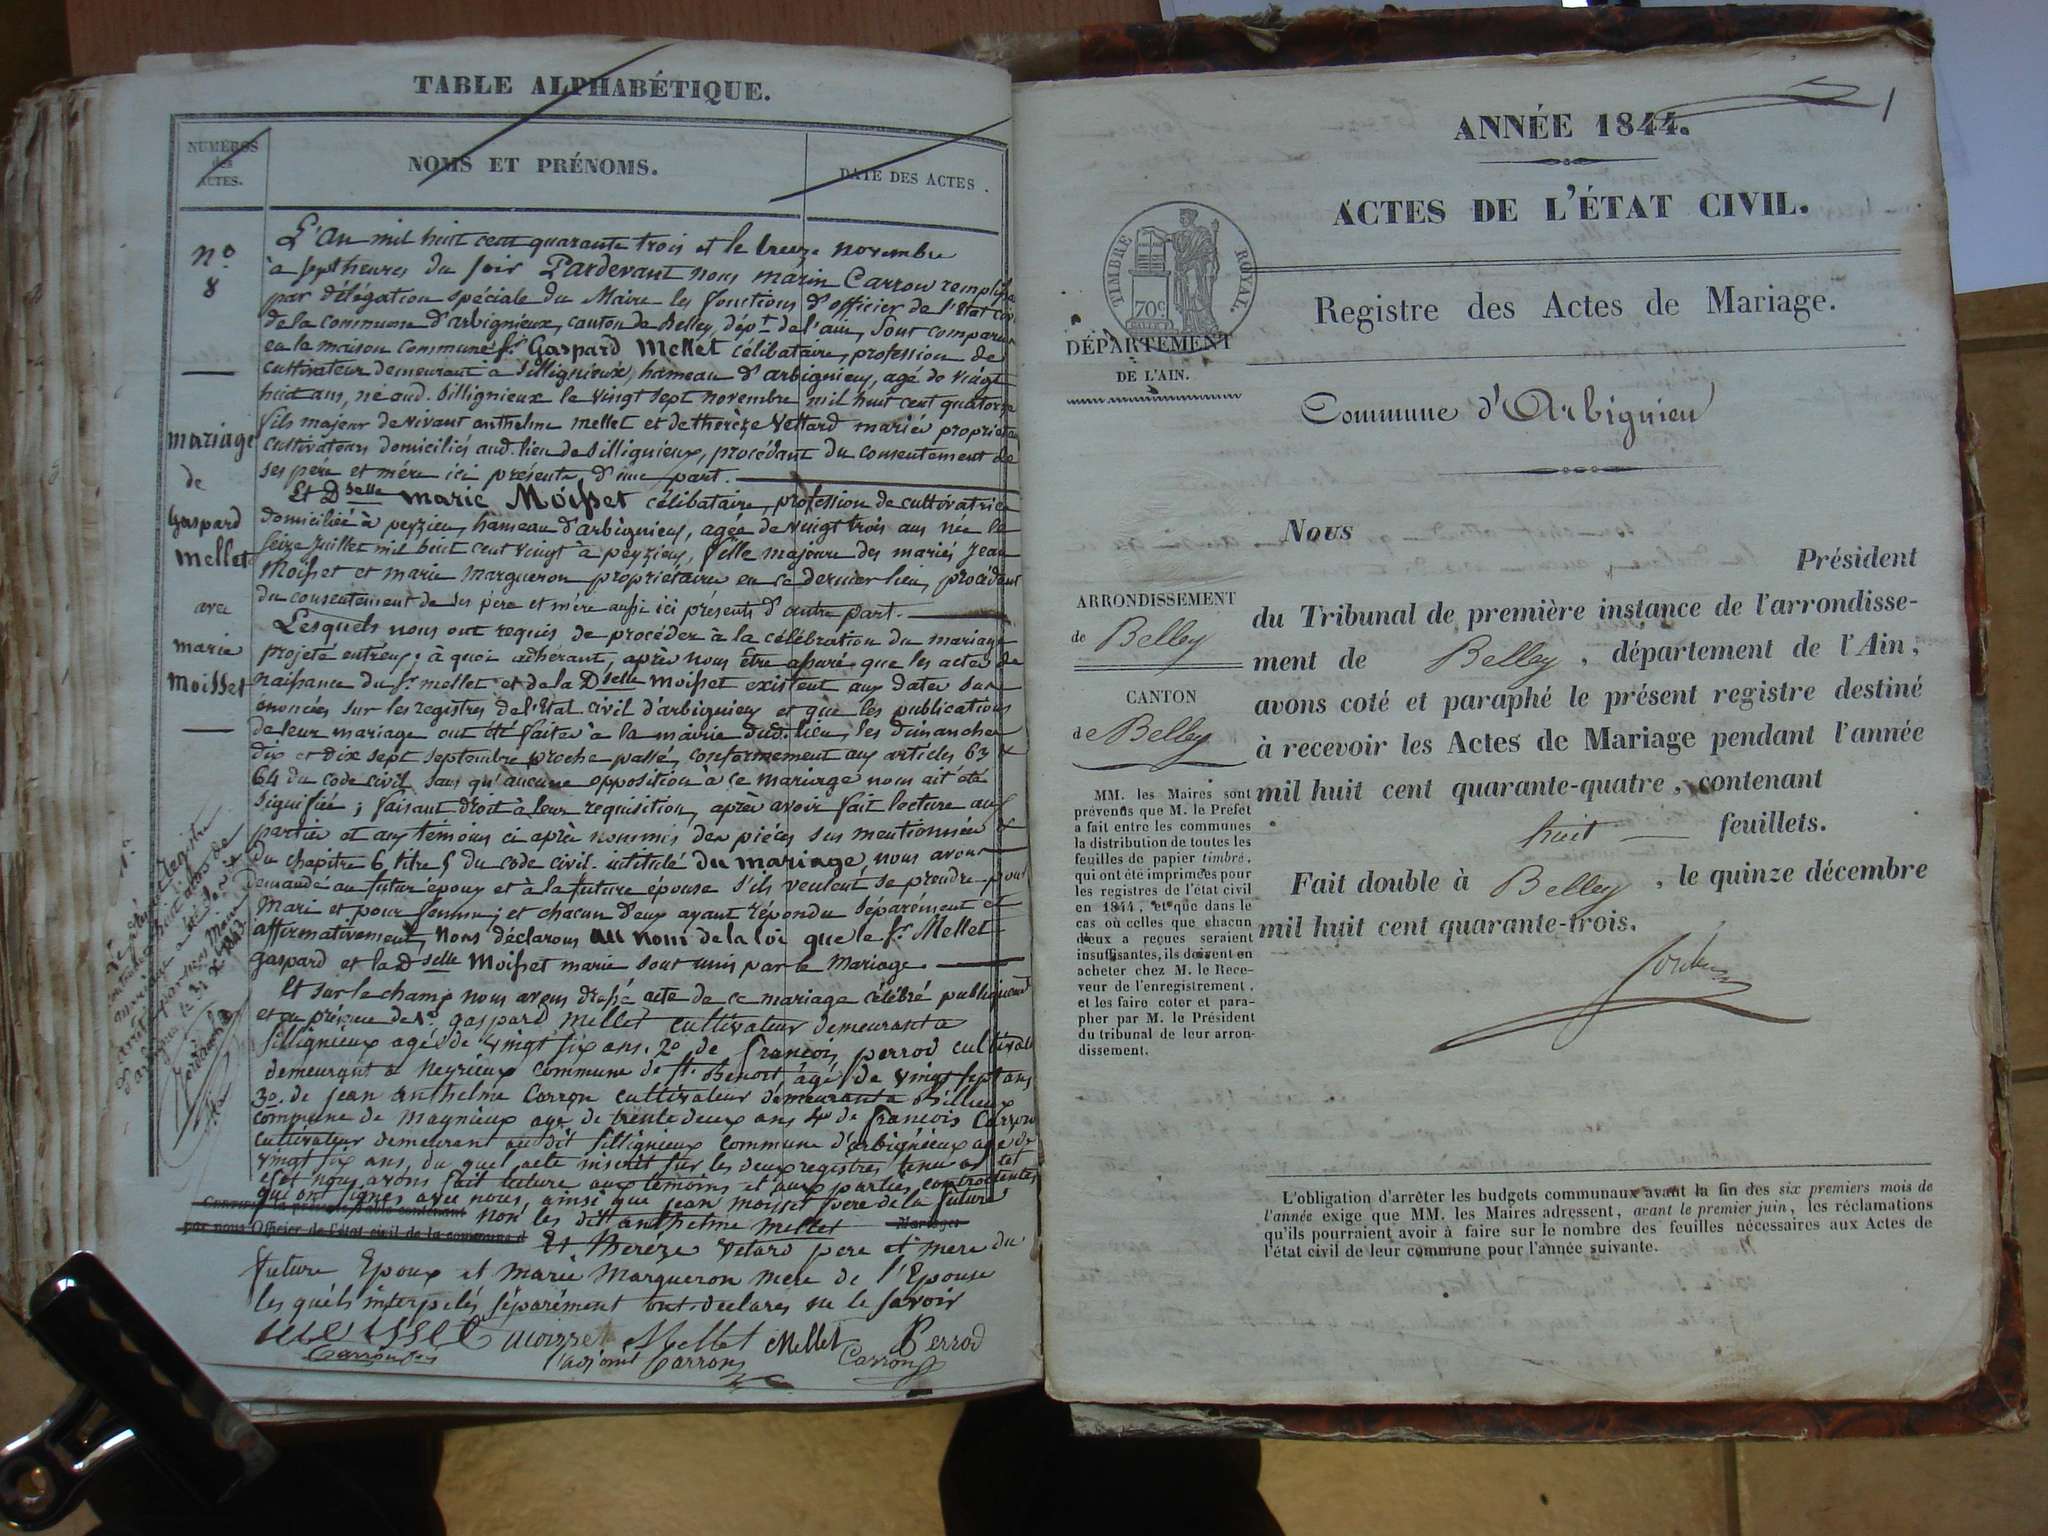 TABLE ALPHABÉTIQUE.
NUMÉROS
des
ACTES.
NOMS ET PRÉNOMS.
DATE DES ACTES.
N.o
8
mariage
de
Gaspard
Mellet
avec
marie
Moisset
L'an mil huit cent quarante trois et le treize novembre
à sept heures du soir Pardevant nous marin Carron remplissa
par délégation spéciale du Maire les fonctions d'officier de l'Etat civ
de la commune d'arbignieux, canton de Belley, dépt de l'ain, sont comparus
en la maison commune Sr Gaspard Mellet célibataire, profession de
cultivateur demeurant à Sillignieux, hameau d'arbignieux, agé de vingt
huit ans, né aud. Sillignieux le vingt sept novembre mil huit cent quatorze
fils majeur de vivant anthelme Mellet et de thérèze Vettard mariés propriétai
cultivateurs domiciliés aud. lieu de Sillignieux, procédant du consentement de
ses père et mère ici présents, d'une part.
Et Dselle marie Moisset célibataire, profession de cultivatrice
domiciliée à peyzieu, hameau d'arbignieu, agée de vingt trois ans née le
seize juillet mil huit cent vingt à peyzieu, fille majeure des mariés Jean
Moisset et marie margueron propriétaires en ce dernier lieu, procédant
du consentement de ses père et mère aussi ici présents d'autre part.
Lesquels nous ont requis de procéder à la célébration du mariage
projeté entr'eux; à quoi adhérant, après nous être assuré que les actes de
naissance du Sr mellet et de la Dselle Moisset existent aux dates sus
énoncées sur les registres de l'Etat civil d'arbignieu et que les publications
de leur mariage ont été faites à la mairie dud. lieu, les dimanches
dix et dix sept septembre proche passé, conformement aux articles 63 &
64 du code civil sans qu'aucune opposition à ce mariage nous ait été
signifiée; faisant droit à leur requisition, après avoir fait lecture aux
parties et aux témoins ci après nommés des pièces sus mentionnées &
du chapitre 6, titre 5 du code civil intitulé du mariage, nous avons
demandé au futur époux et à la future épouse s'ils veulent se prendre pour
Mari et pour femme; et chacun d'eux ayant répondu séparément et
affirmativement, nous déclarons au nom de la loi que le Sr Mellet
gaspard et la Dselle Moisset marie sont unis par le Mariage.
Et sur le champ nous avons dressé acte de ce mariage célébré publiquement
et en présence de 1o gaspard Mellet cultivateur demeurant a
Sillignieux agé de vingt six ans. 2o de françois perrod cultivat
demeurant a neyrieux commune de St Benoit agé de vingt sept ans
3o. de jean anthelme Carron cultivateur demeurant a Billieux
commune de magnieux age de trente deux ans 4o de françois Carron
cultivateur demeurant au dit Sillignieux commune d'arbignieux age de
vingt six ans, du quel acte inscrit sur les deux registres tenu a cet
efet nous avons fait lecture aux témoins et aux parties contractantes
qui ont signés avec nous, ainsi que jean moisset père de la future
CERTIFIÉ la présente Table contenant
non les dits anthelme mellet
Mariages
par nous Officier de l'état civil de la commune d
Et thereze vetard pere et mere du
future Epoux et marie Margueron mere de l'Epouse
les quels interpelés séparément ont declarés ne le savoir
Moisset Mellet Mellet Perrod
Carron
l'adjoint Carron
Carron
1
ANNÉE 1844.
ACTES DE L'ÉTAT CIVIL.
TIMBRE ROYAL.
70c
DÉPARTEMENT
DE L'AIN.
Registre des Actes de Mariage.
Commune d'Arbignieu
ARRONDISSEMENT
de Belley
CANTON
de Belley
MM. les Maires sont
prévenus que M. le Préfet
a fait entre les communes
la distribution de toutes les
feuilles de papier timbré,
qui ont été imprimées pour
les registres de l'état civil
en 1844, et que dans le
cas où celles que chacun
d'eux a reçues seraient
insuffisantes, ils doivent en
acheter chez M. le Rece-
veur de l'enregistrement,
et les faire coter et para-
pher par M. le Président
du tribunal de leur arron-
dissement.
Nous
Président
du Tribunal de première instance de l'arrondisse-
ment de Belley, département de l'Ain;
avons coté et paraphé le présent registre destiné
à recevoir les Actes de Mariage pendant l'année
mil huit cent quarante-quatre, contenant
huit feuillets.
Fait double à Belley, le quinze décembre
mil huit cent quarante-trois.
L'obligation d'arrêter les budgets communaux avant la fin des six premiers mois de
l'année exige que MM. les Maires adressent, avant le premier juin, les réclamations
qu'ils pourraient avoir à faire sur le nombre des feuilles nécessaires aux Actes de
l'état civil de leur commune pour l'année suivante.